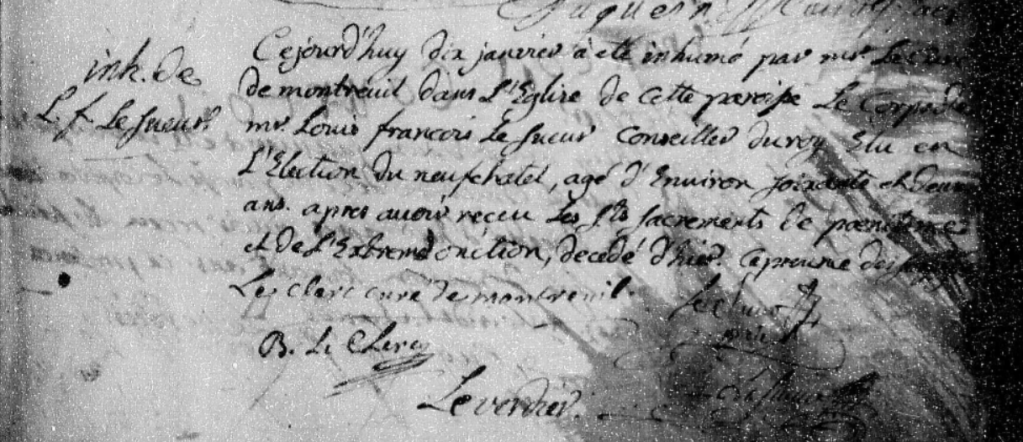 inh. de
L. f. Le sueur
Cejourd'huy dix janvier à eté inhumé par mr. Le Curé
de montreuil dans L'Eglise de cette paroisse Le Corps de
mr. Louis francois Le sueur Conseiller du roy Elu en
L'Election du neufchatel, agé d'Environ soixante et deux
ans. apres avoir receu Les sts sacrements de poenitence
et de L'Extremeonction, decedé d'hier. En presence des
Le Clerc curé de montreuil.
B. Le Clerc
Le verdier.